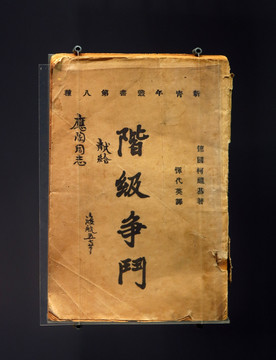 新青年叢書第八種
德國柯祖基著
惲代英譯
階級争鬥
獻給
應陶同志